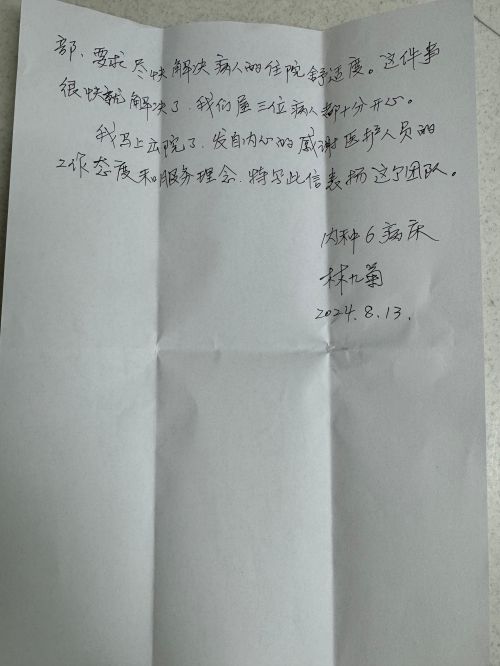 部、要求尽快解决病人的住院舒适度。这件事
很快就解决了,我们屋三位病人都十分开心。
我马上出院了,发自内心的感谢医护人员的
工作态度和服务理念,特写此信表扬这个团队。
内科6病床
林九菊
2024.8.13.